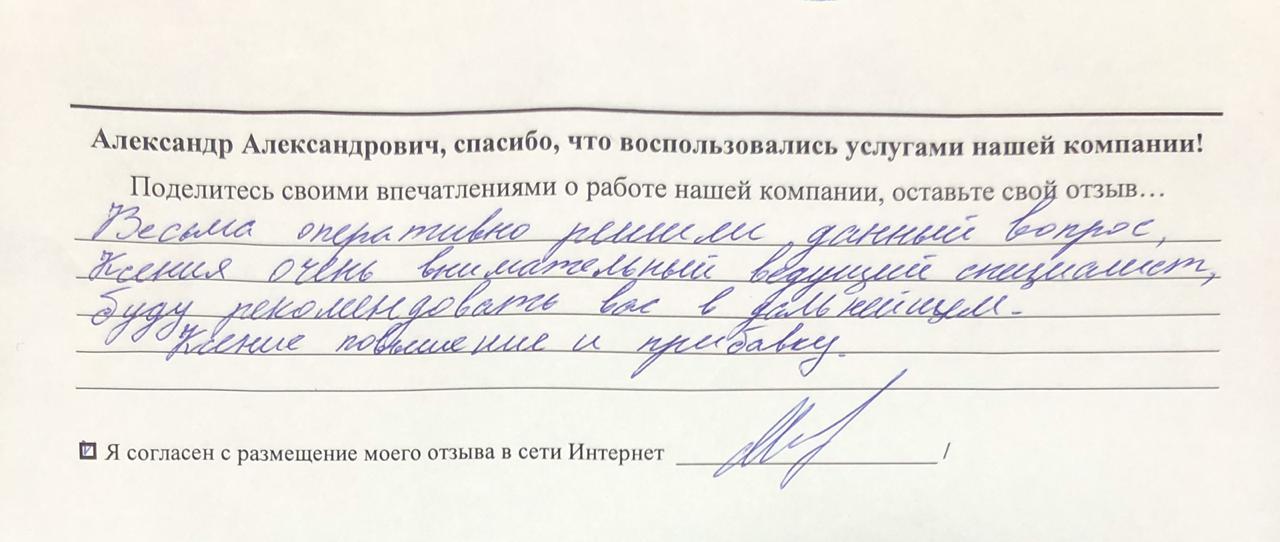 Александр Александрович, спасибо, что воспользовались услугами нашей компании!
Поделитесь своими впечатлениями о работе нашей компании, оставьте свой отзыв…
Весьма оперативно решили данный вопрос,
Ксения очень внимательный ведущий специалист,
буду рекомендовать вас в дальнейшем.
Ксение повышение и прибавку.
Я согласен с размещение моего отзыва в сети Интернет /